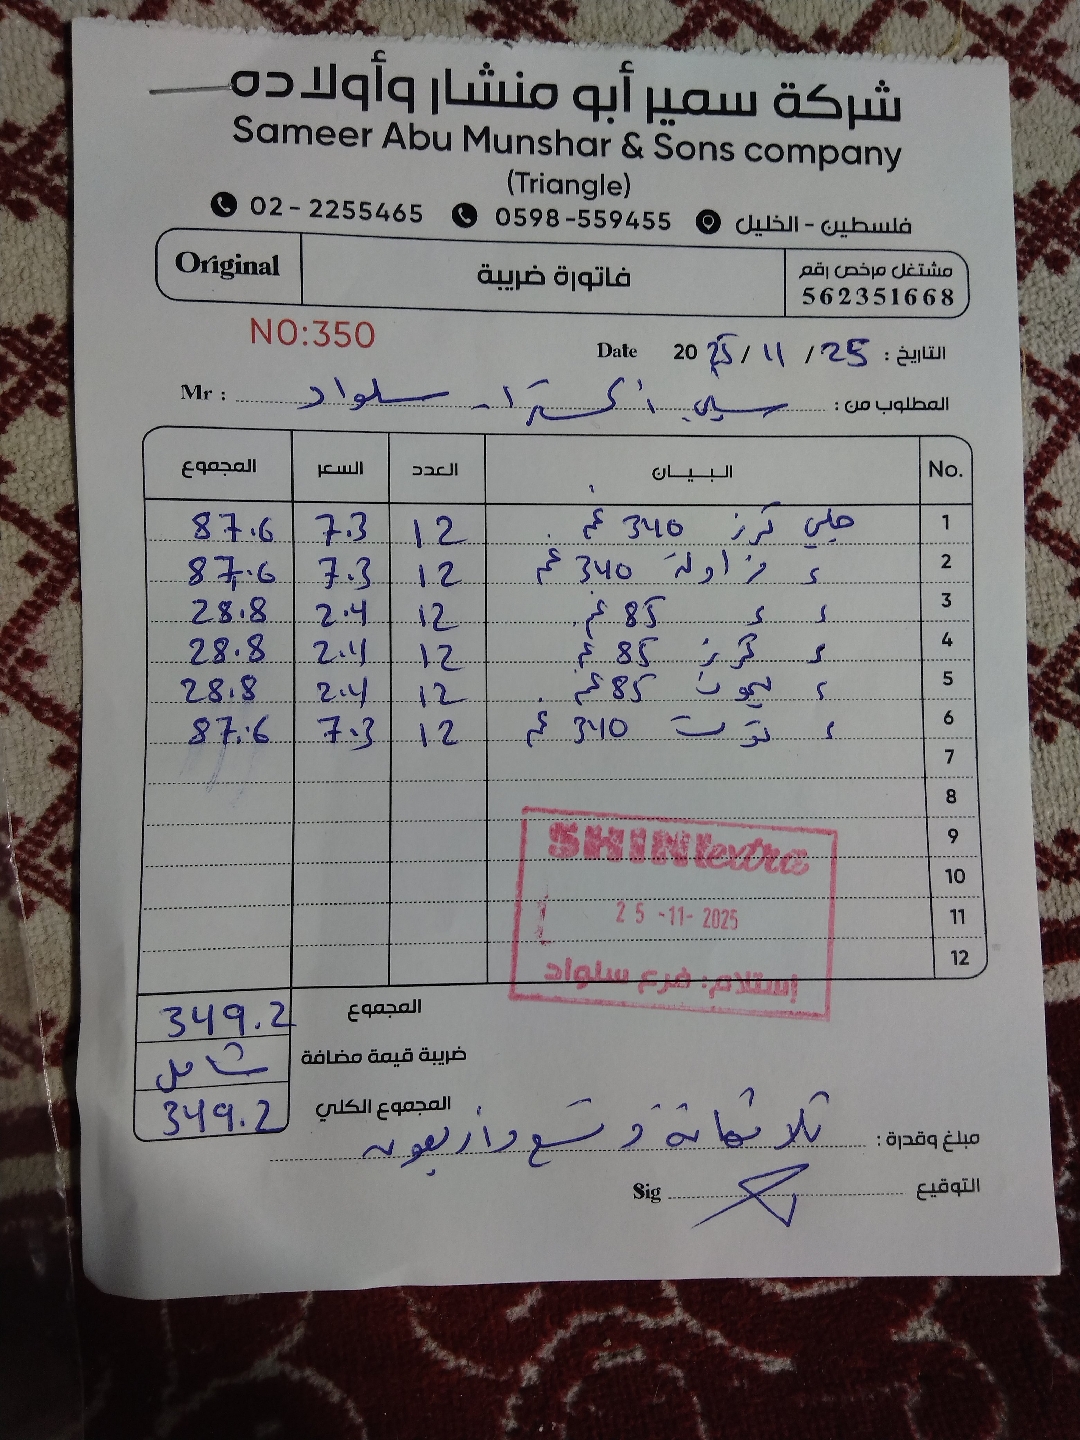 شركة سمير أبو منشار وأولاده
Sameer Abu Munshar & Sons company
(Triangle)
02 - 2255465 0598 -559455 فلسطين - الخليل
Original فاتورة ضريبة مشتغل مرخص رقم 562351668
NO:350
Date 2025 / 11 / 25 التاريخ :
Mr : المطلوب من : شيني اكسترا - سلواد
No. البيـــان العدد السعر المجموع
1 جلي كرز 340 غم 12 7.3 87.6
2 ء فراولة 340 غم 12 7.3 87.6
3 ء ء 85 غم 12 2.4 28.8
4 ء كرز 85 غم 12 2.4 28.8
5 ء ليمون 85 غم 12 2.4 28.8
6 ء توت 340 غم 12 7.3 87.6
7
8
9
10
11
12
SHINI extra
25 -11- 2025
إستلام: فرع سلواد
المجموع 349.2
ضريبة قيمة مضافة شامل
المجموع الكلي 349.2
مبلغ وقدرة : ثلاثمائة وتسع وأربعون
Sig التوقيع